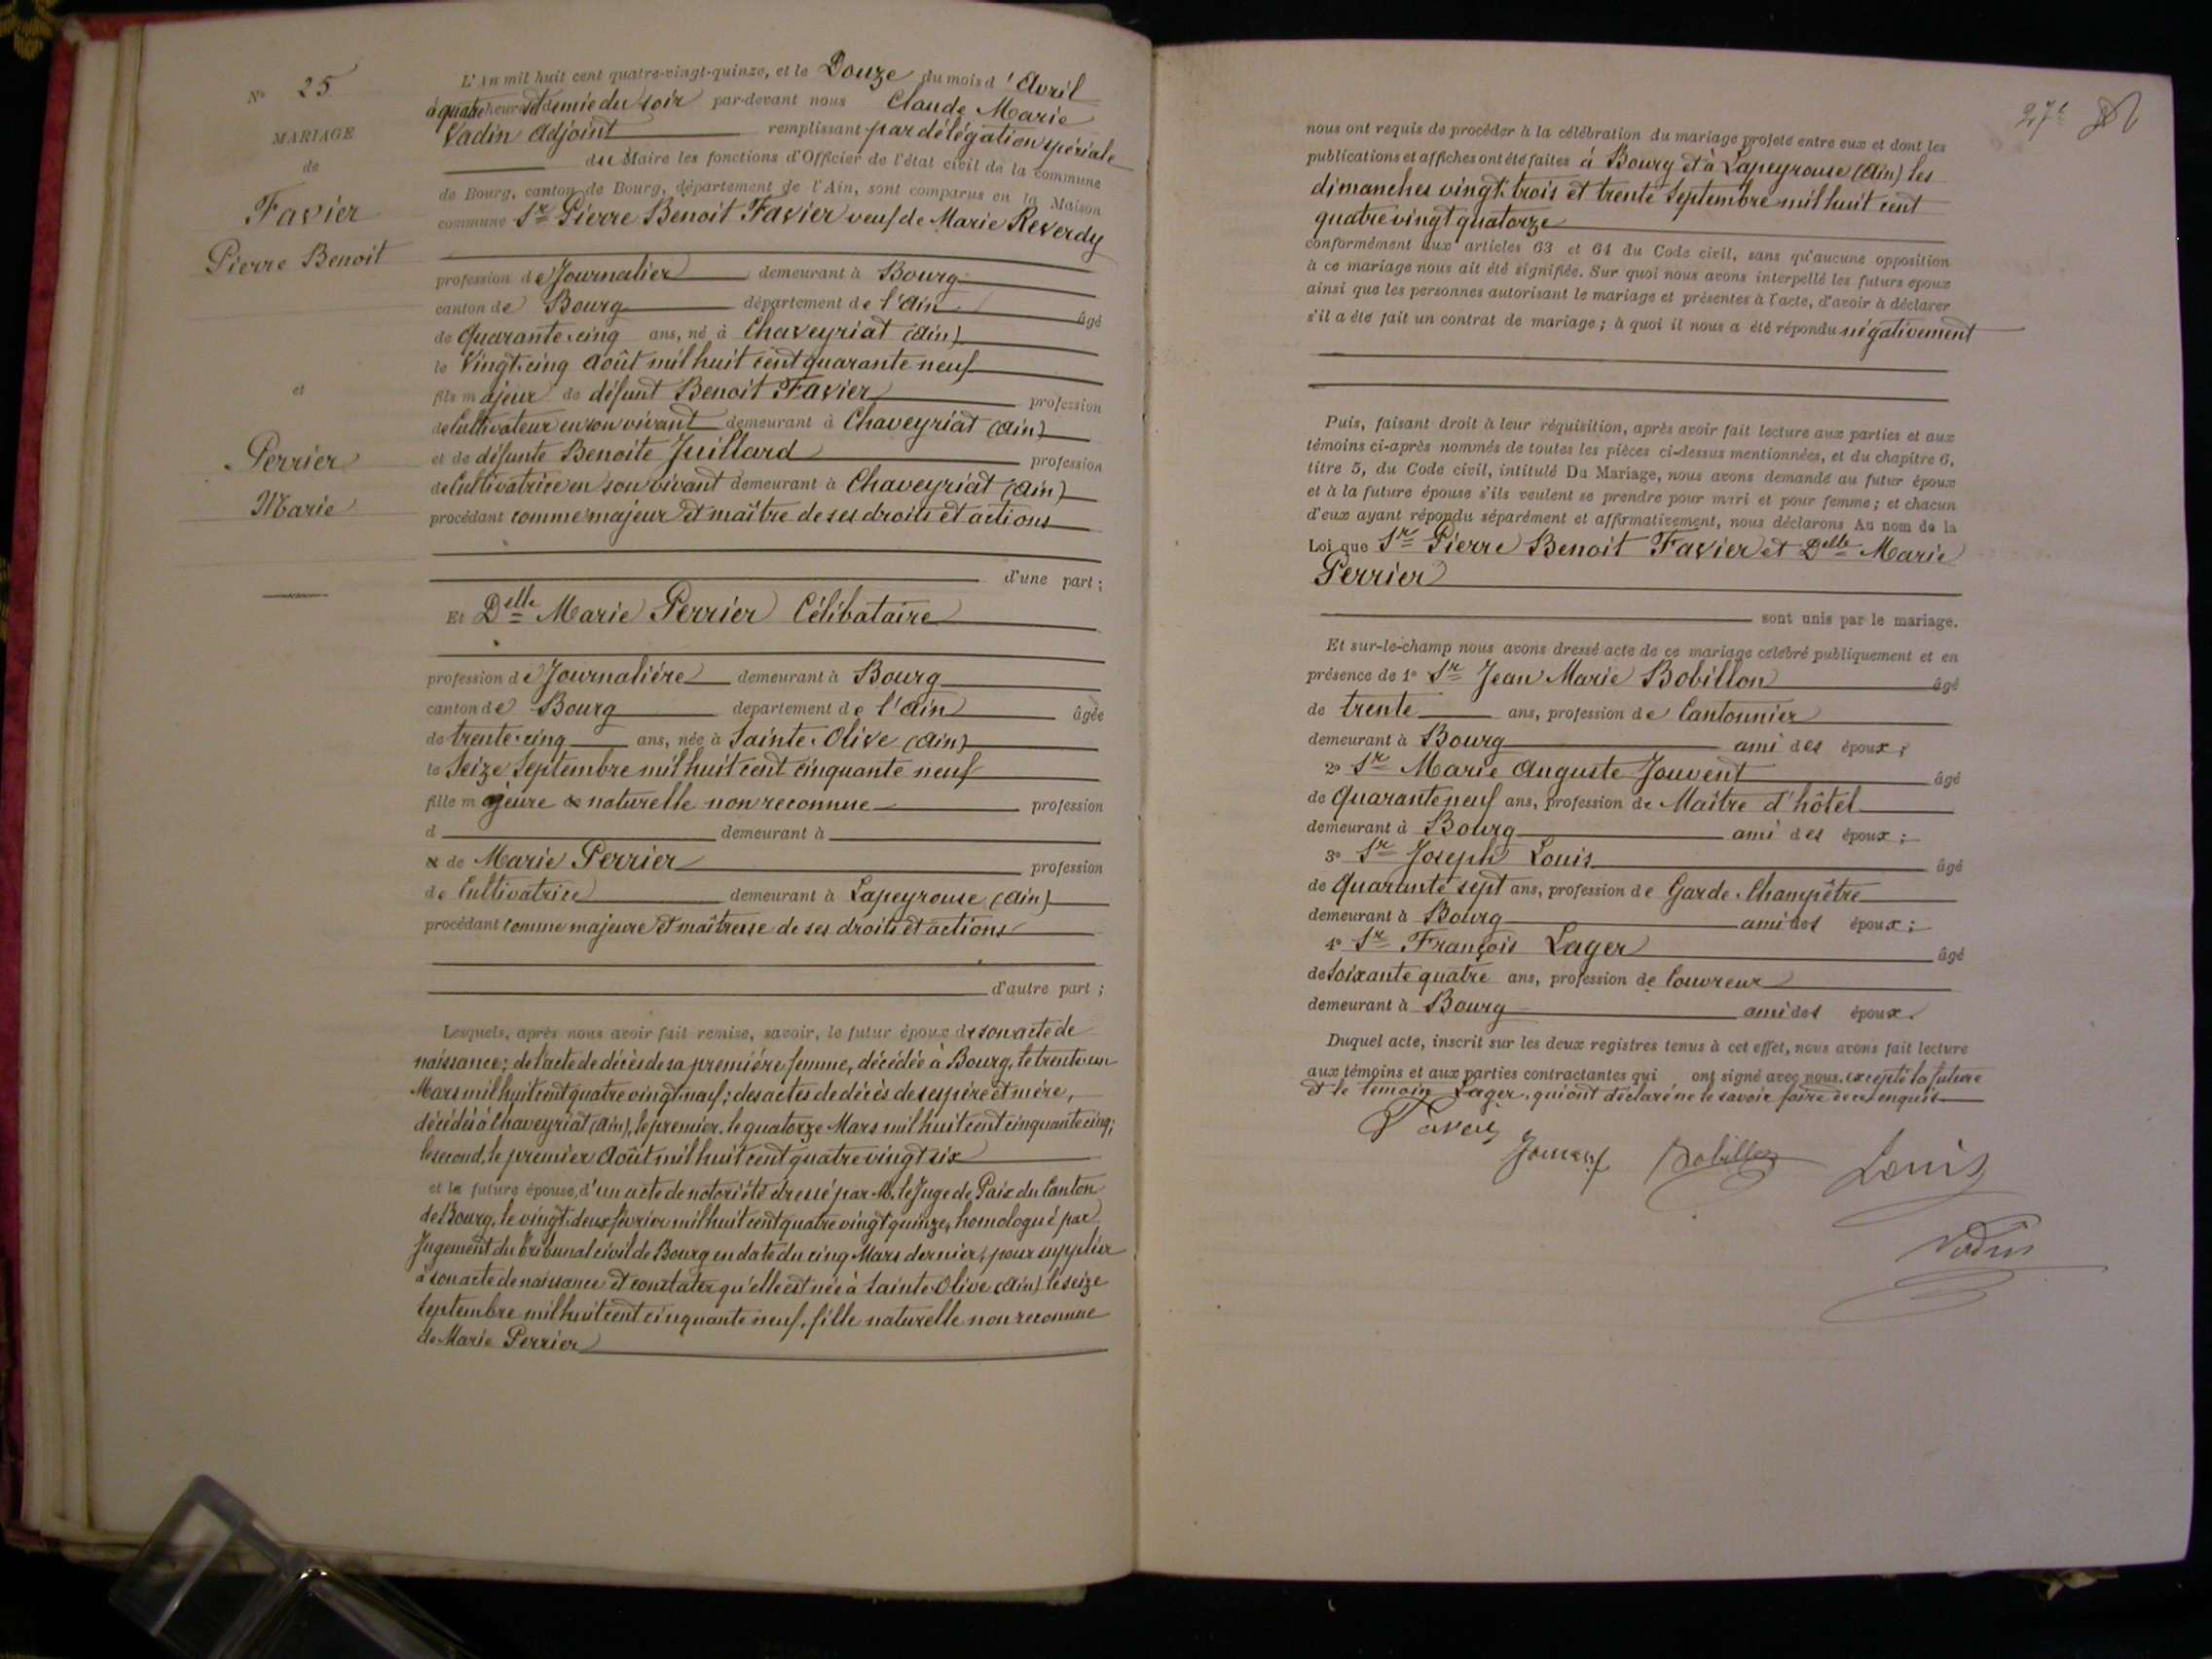 N° 25
MARIAGE
de
Favier
Pierre Benoit
et
Perrier
Marie
L'An mil huit cent quatre-vingt-quinze, et le Douze du mois d'Avril
à quatre heures et demie du soir par-devant nous Claude Marie
Vadin Adjoint remplissant par délégation spéciale
du Maire les fonctions d'Officier de l'état civil de la commune
de Bourg, canton de Bourg, département de l'Ain, sont comparus en la Maison
commune Sr Pierre Benoit Favier veuf de Marie Reverdy
profession de Journalier demeurant à Bourg
canton de Bourg département de l'Ain âgé
de Quarante-cinq ans, né à Chaveyriat (Ain)
le Vingt-cinq Août mil huit cent quarante neuf
fils majeur de défunt Benoit Favier profession
de Cultivateur en son vivant demeurant à Chaveyriat (Ain)
et de défunte Benoite Juillard profession
de Cultivatrice en son vivant demeurant à Chaveyriat (Ain)
procédant comme majeur et maître de ses droits et actions
d'une part ;
Et Delle Marie Perrier Célibataire
profession de Journalière demeurant à Bourg
canton de Bourg département de l'Ain âgée
de trente-cinq ans, née à Sainte-Olive (Ain)
le Seize Septembre mil huit cent cinquante neuf
fille majeure & naturelle non reconnue profession
d demeurant à
& de Marie Perrier profession
de Cultivatrice demeurant à Lapeyrouse (Ain)
procédant comme majeure et maîtresse de ses droits et actions
d'autre part ;
Lesquels, après nous avoir fait remise, savoir, le futur époux de son acte de
naissance ; de l'acte de décès de sa première femme, décédée à Bourg, le trente-un
Mars mil huit cent quatre vingt-neuf ; des actes de décès de ses père et mère,
décédés à Chaveyriat (Ain), le premier, le quatorze Mars mil huit cent cinquante cinq ;
le second, le premier Août mil huit cent quatre vingt six
et la future épouse, d'un acte de notoriété dressé par M. le Juge de Paix du Canton
de Bourg, le vingt-deux février mil huit cent quatre vingt quinze, homologué par
Jugement du tribunal civil de Bourg en date du cinq Mars dernier, pour suppléer
à son acte de naissance et constater qu'elle est née à Sainte-Olive (Ain) le seize
Septembre mil huit cent cinquante neuf, fille naturelle non reconnue
de Marie Perrier
nous ont requis de procéder à la célébration du mariage projeté entre eux et dont les
publications et affiches ont été faites à Bourg et à Lapeyrouse (Ain) les
dimanches vingt-trois et trente Septembre mil huit cent
quatre vingt quatorze
conformément aux articles 63 et 64 du Code civil, sans qu'aucune opposition
à ce mariage nous ait été signifiée. Sur quoi nous avons interpellé les futurs époux
ainsi que les personnes autorisant le mariage et présentes à l'acte, d'avoir à déclarer
s'il a été fait un contrat de mariage ; à quoi il nous a été répondu négativement
Puis, faisant droit à leur réquisition, après avoir fait lecture aux parties et aux
témoins ci-après nommés de toutes les pièces ci-dessus mentionnées, et du chapitre 6,
titre 5, du Code civil, intitulé Du Mariage, nous avons demandé au futur époux
et à la future épouse s'ils veulent se prendre pour mari et pour femme ; et chacun
d'eux ayant répondu séparément et affirmativement, nous déclarons Au nom de la
Loi que Sr Pierre Benoit Favier et Delle Marie
Perrier
sont unis par le mariage.
Et sur-le-champ nous avons dressé acte de ce mariage célébré publiquement et en
présence de 1° Sr Jean Marie Bobillon âgé
de trente ans, profession de Cantonnier
demeurant à Bourg ami des époux ;
2° Sr Marie Auguste Jouvent âgé
de Quarante neuf ans, profession de Maître d'hôtel
demeurant à Bourg ami des époux ;
3° Sr Joseph Louis âgé
de Quarante sept ans, profession de Garde-Champêtre
demeurant à Bourg ami des époux ;
4° Sr François Lager âgé
de Soixante quatre ans, profession de Couvreur
demeurant à Bourg ami des époux.
Duquel acte, inscrit sur les deux registres tenus à cet effet, nous avons fait lecture
aux témoins et aux parties contractantes qui ont signé avec nous, excepté la future
et le témoin Lager, qui ont déclaré ne le savoir faire de ce enquis
Favier
Jouvent Bobillon Louis
Vadin